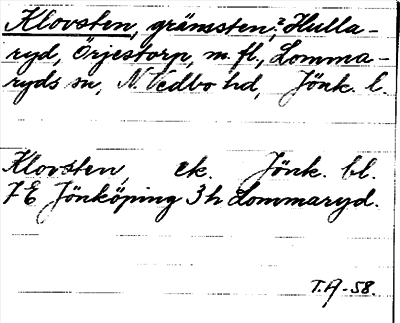 Klovsten, gränssten, Hulla-
ryd, Örjestorp, m. fl., Lomma-
ryds sn, N. Vedbo hd, Jönk. l.
Klovsten, ek. Jönk. bl.
7 E Jönköping 3 h Lommaryd.
T.A -58.